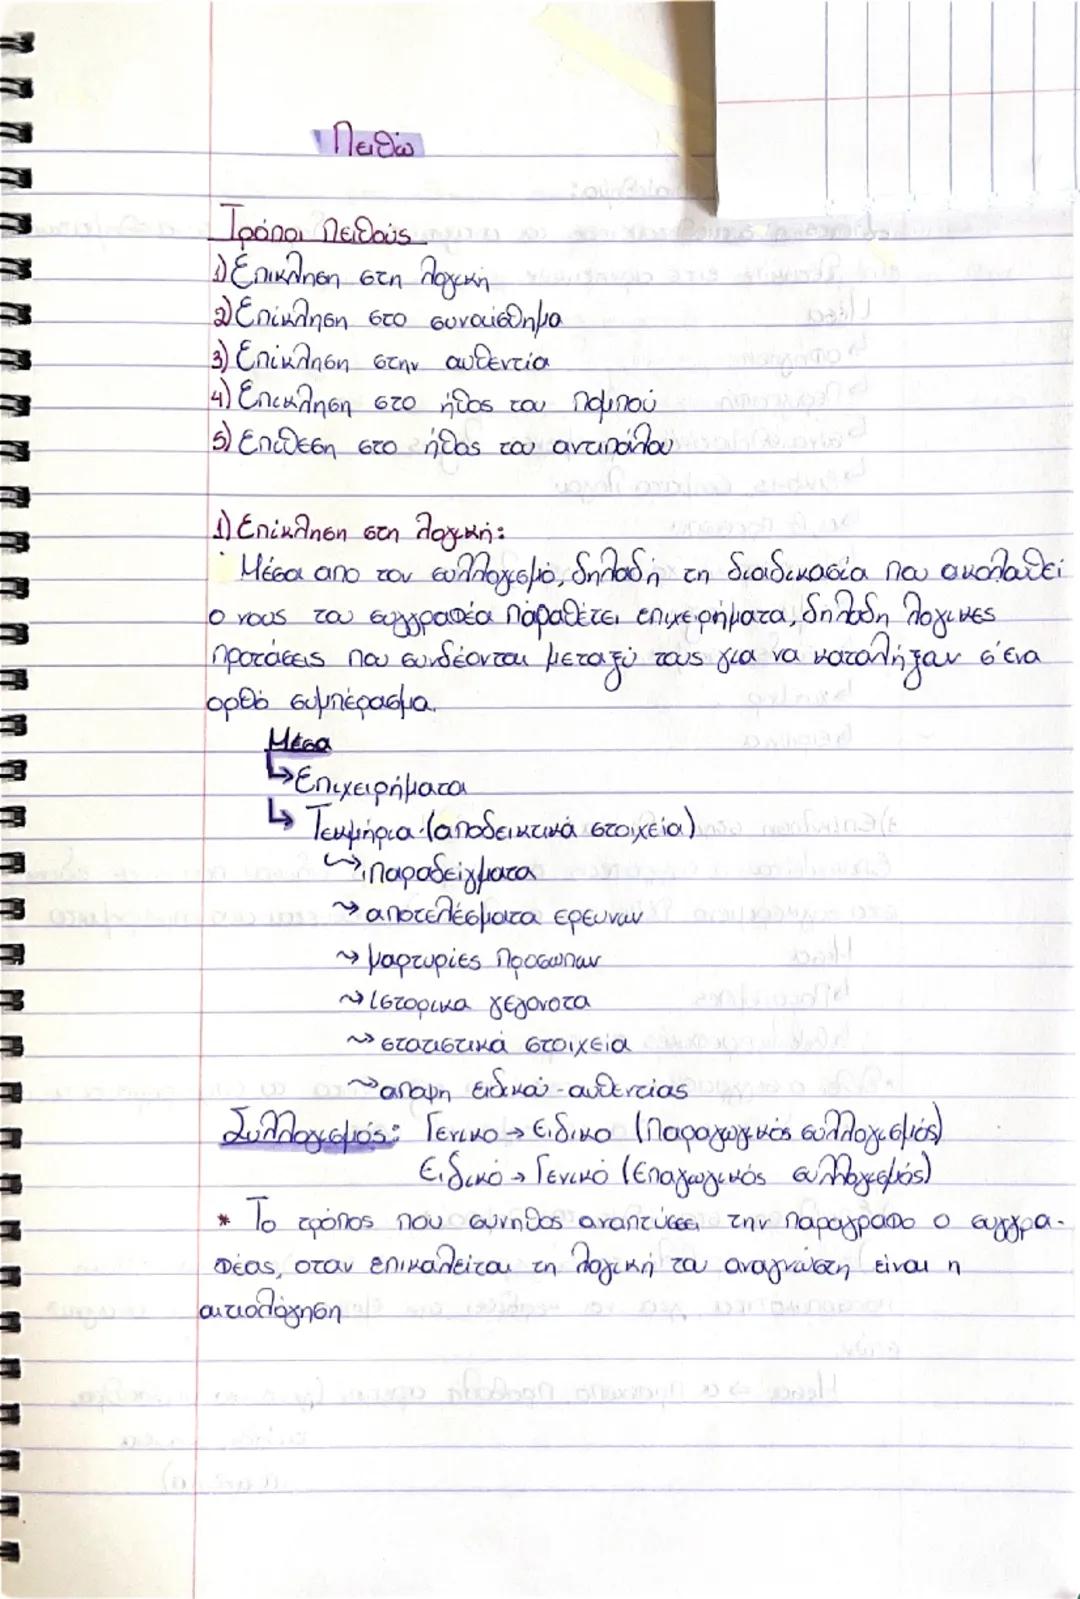 Πειθώ
Τρόποι Πειθούς
1) Επικληση στη λογική
2) Επίκληση στο συναίσθημα
3) Επίκληση στην αυθεντία
4) Επικληση στο ήθος του πομπού
5) Επιθεση στο ήθος του αντιπάλου
1) Επίκληση στη λογική:
Μέσα απο τον συλλογισμό, δηλαδή τη διαδικασία που ακολουθεί
ο νους του συγγραφέα παραθέτει επιχειρήματα, δηλαδη λογικες
προτάσεις που συνδέονται μεταξύ τους για να καταλήξουν σ'ένα
ορθό συμπέρασμα.
Μέσα
↳ Επιχειρήματα
↳ Τεκμήρια (αποδεικτικά στοιχεία)
↝ παραδείγματα
↝ αποτελέσματα ερευνων
↝ μαρτυρίες προσωπων
↝ ιστορικα γεγονοτα
↝ στατιστικά στοιχεία
↝ αποψη ειδικού - αυθεντίας
Συλλογισμός: Γενικο → Ειδικο (παραγωγικός συλλογισμός)
Ειδικό → Γενικό (Επαγωγικός συλλογισμός)
* Το τρόπος που συνηθος αναπτύσσει την παραγραφο ο συγγρα-
φέας, οταν επικαλείται τη λογική του αναγνώστη είναι η
αιτιολόγηση